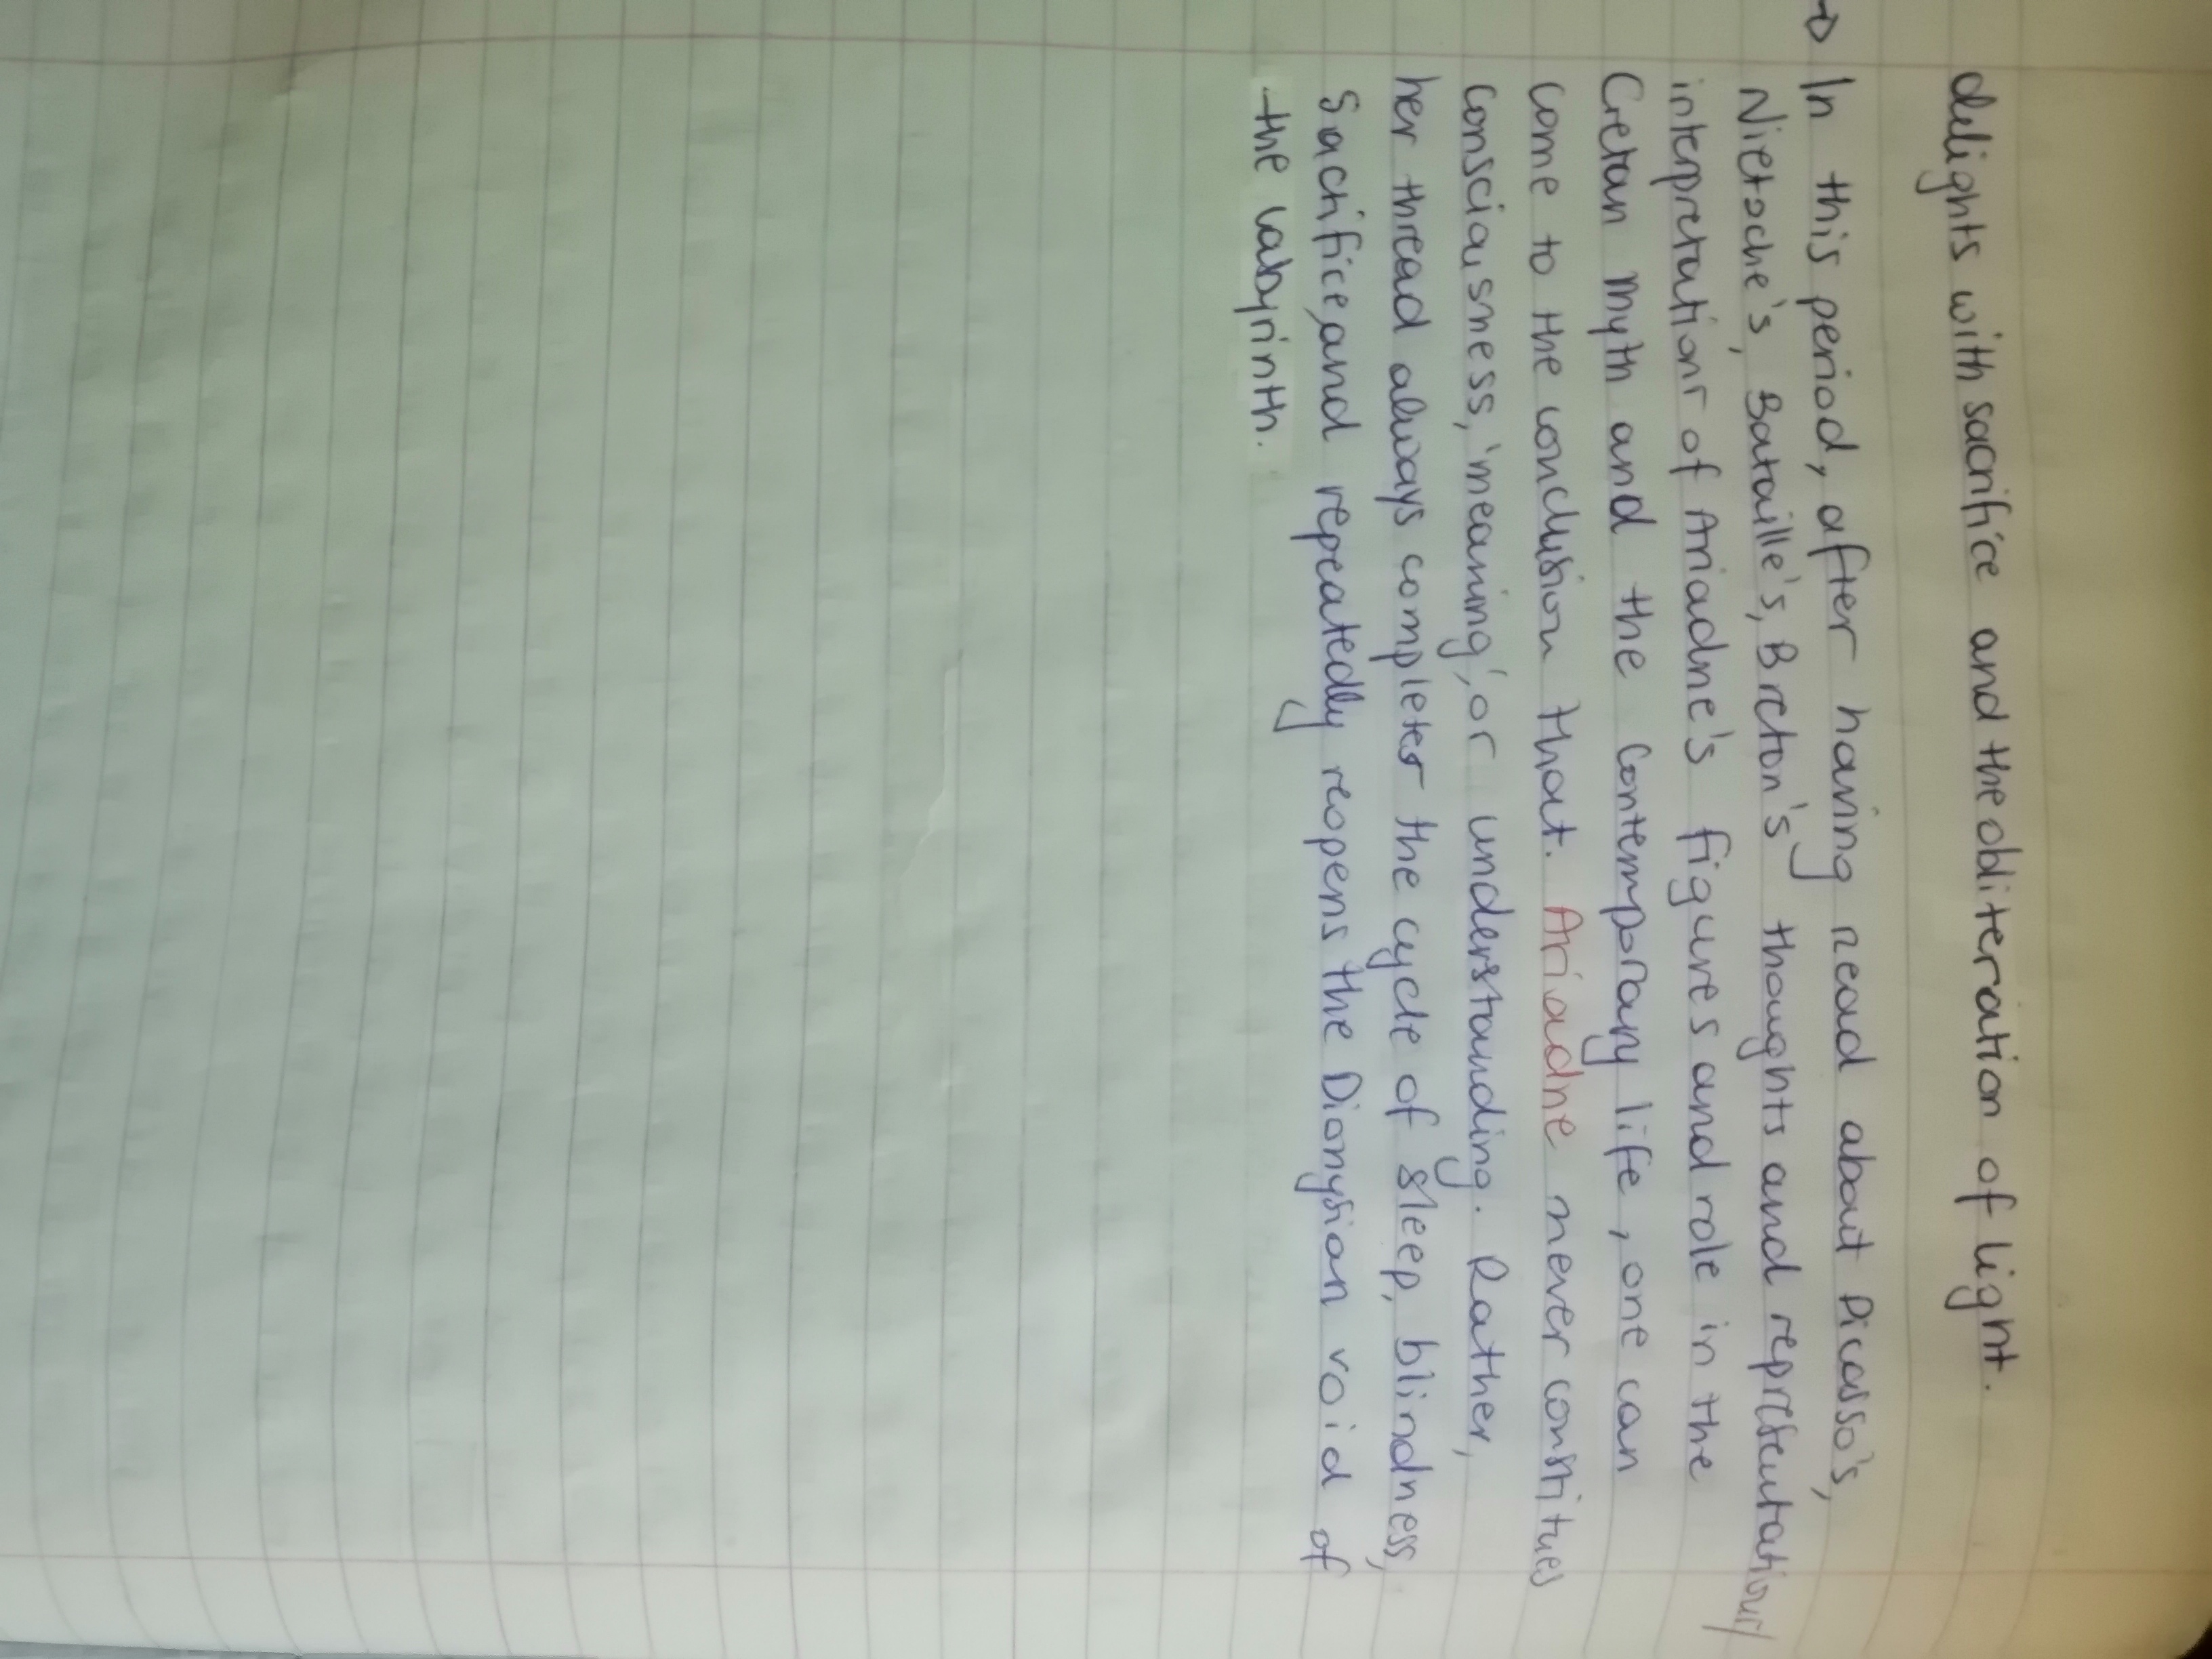 delights with sacrifice and the obliteration of light.
→ In this period, after having read about Picasso's,
Nietzsche's, Bataille's, Breton's thoughts and representations/
interpretations of Ariadne's figures and role in the
Cretan myth and the contemporary life, one can
come to the conclusion that. Ariadne never constitues
consciousness, 'meaning', or understanding. Rather,
her thread always completes the cycle of sleep, blindness,
sacrifice, and repeatedly reopens the Dionysian void of
the labyrinth.